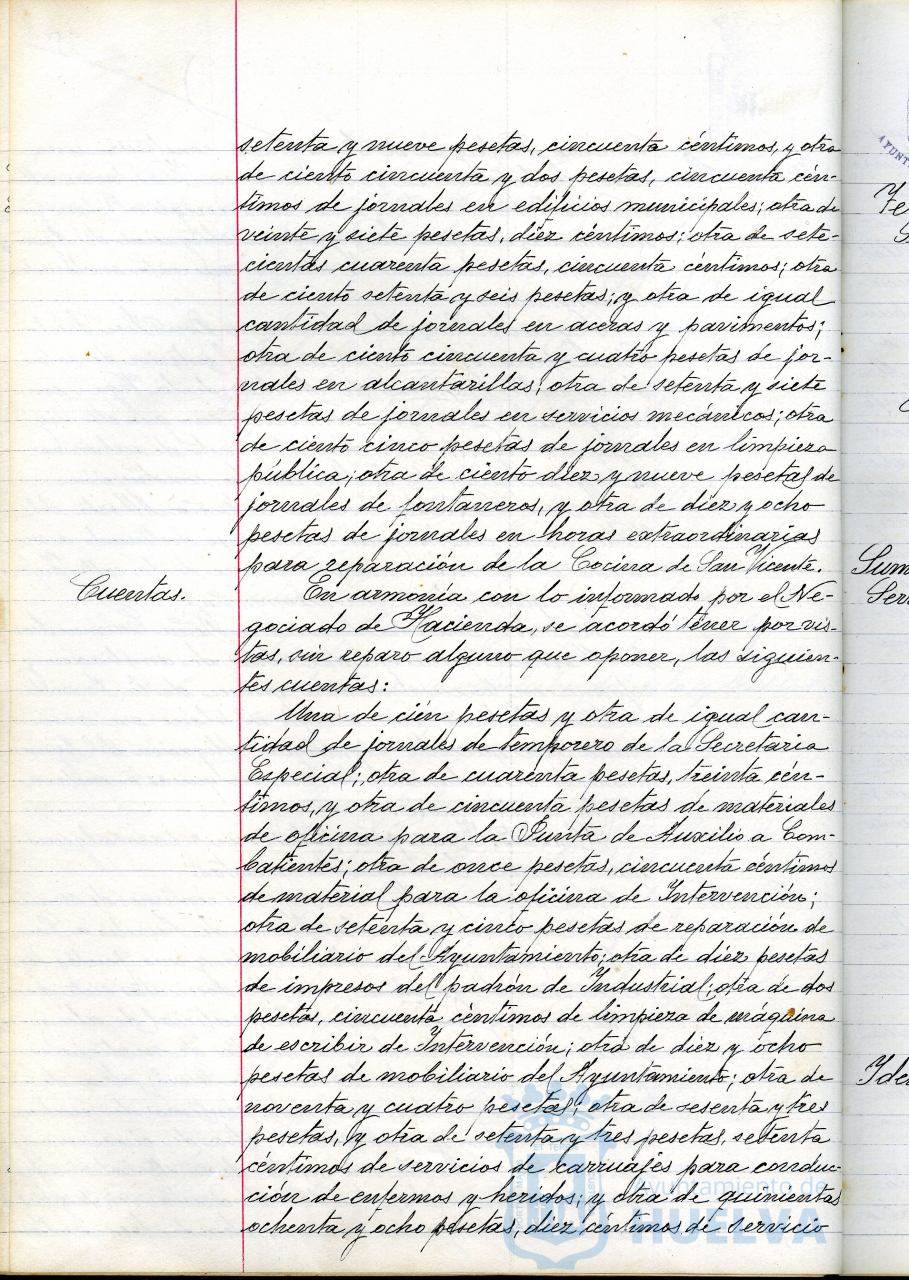 setenta y nueve pesetas, cincuenta céntimos, y otra
de ciento cincuenta y dos pesetas, cincuenta cén-
timos de jornales en edificios municipales; otra de
veinte y siete pesetas, diez céntimos; otra de sete-
cientas cuarenta pesetas, cincuenta céntimos; otra
de ciento setenta y seis pesetas; y otra de igual
cantidad de jornales en aceras y pavimentos;
otra de ciento cincuenta y cuatro pesetas de jor-
nales en alcantarillas; otra de setenta y siete
pesetas de jornales en servicios mecánicos; otra
de ciento cinco pesetas de jornales en limpieza
pública; otra de ciento diez y nueve pesetas de
jornales de fontaneros, y otra de diez y ocho
pesetas de jornales en horas extraordinarias
para reparación de la Cocina de San Vicente.
Cuentas.
En armonía con lo informado por el Ne-
gociado de Hacienda, se acordó tener por vis-
tas, sin reparo alguno que oponer, las siguien-
tes cuentas:
Una de cién pesetas y otra de igual can-
tidad de jornales de temporero de la Secretaria
Especial; otra de cuarenta pesetas, treinta cén-
timos, y otra de cincuenta pesetas de materiales
de oficina para la Junta de Auxilio a Com-
batientes; otra de once pesetas, cincuenta céntimos
de material para la oficina de Intervención;
otra de setenta y cinco pesetas de reparación de
mobiliario del Ayuntamiento; otra de diez pesetas
de impresos del padrón de Industrial; otra de dos
pesetas, cincuenta céntimos de limpieza de máquina
de escribir de Intervención; otra de diez y ocho
pesetas de mobiliario del Ayuntamiento; otra de
noventa y cuatro pesetas; otra de sesenta y tres
pesetas, y otra de setenta y tres pesetas, setenta
céntimos de servicios de carruajes para conduc-
ción de enfermos y heridos; y otra de quinientas
ochenta y ocho pesetas, diez céntimos de servicio
Ayuntamiento de
HUELVA